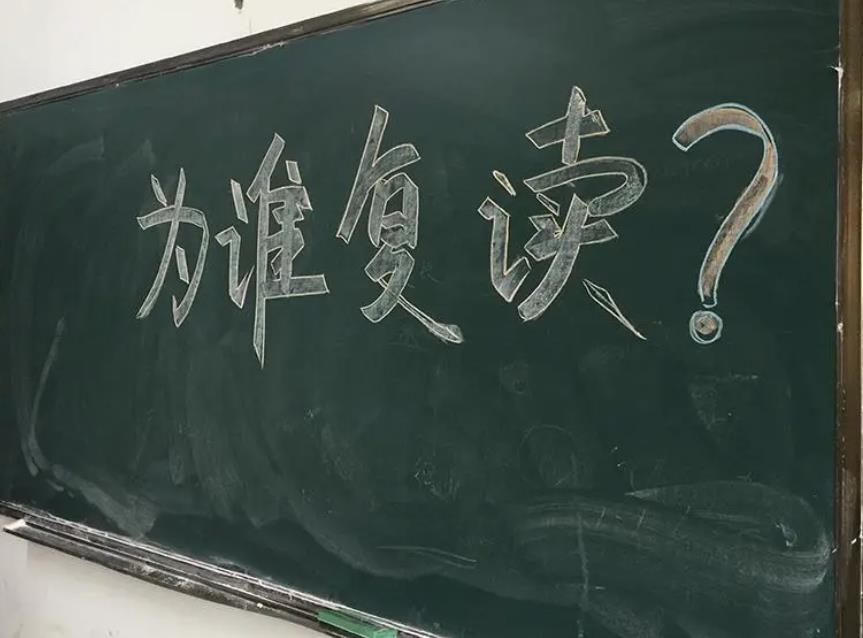 为谁复读?